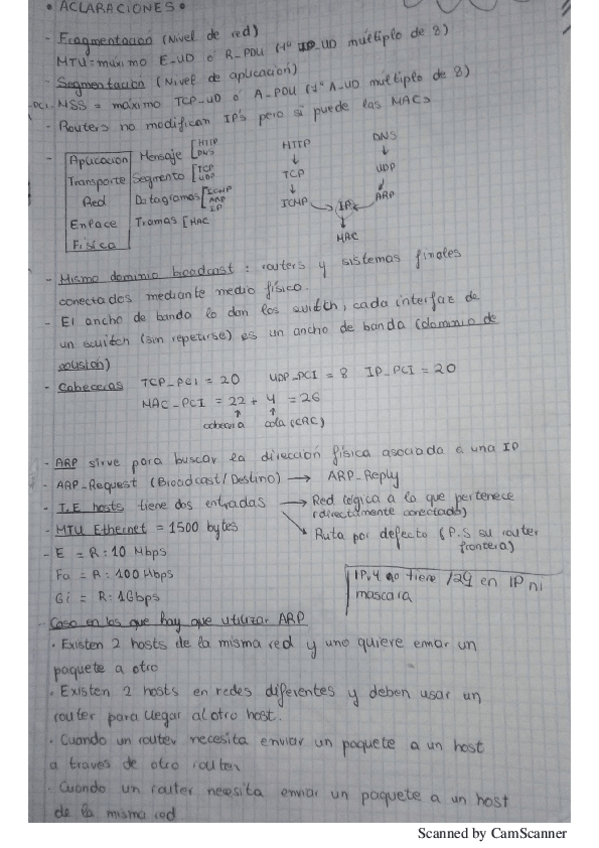 • ACLARACIONES •
- Fragmentación (Nivel de red)
MTU = máximo E_UD ó R_PDU (1º IP_UD múltiplo de 8)
- Segmentación (Nivel de aplicación)
MSS = máximo TCP_UD ó A_PDU (1º A_UD múltiplo de 8)
- Routers no modifican IP's pero sí puede las MACs
- Aplicación Mensaje [HTTP DNS
Transporte Segmento [TCP UDP
Red Datagramas [ICMP ARP IP
Enlace Tramas [MAC
Física
HTTP DNS
TCP UDP
ICMP IP ARP
MAC
- Mismo dominio broadcast : routers y sistemas finales
conectados mediante medio físico.
- El ancho de banda lo dan los switch, cada interfaz de
un switch (sin repetirse) es un ancho de banda (dominio de
colisión)
- Cabeceras TCP_PCI = 20 UDP_PCI = 8 IP_PCI = 20
MAC_PCI = 22 + 4 = 26
cabecera cola (CRC)
- ARP sirve para buscar la dirección física asociada a una IP
- ARP-Request (Broadcast/Destino) → ARP_Reply
- T.E hosts tiene dos entradas → Red lógica a la que pertenece
(directamente conectado)
- MTU Ethernet = 1500 bytes
Ruta por defecto (P.S su router
frontera)
- E = R: 10 Mbps
Fa = R: 100 Mbps
Gi = R: 1Gbps
IPv4 no tiene /29 en IP ni
máscara
- Caso en los que hay que utilizar ARP
· Existen 2 hosts de la misma red y uno quiere enviar un
paquete a otro
· Existen 2 hosts en redes diferentes y deben usar un
router para llegar al otro host.
· Cuando un router necesita enviar un paquete a un host
a traves de otro router
· Cuando un router necesita enviar un paquete a un host
de la misma red
Scanned by CamScanner